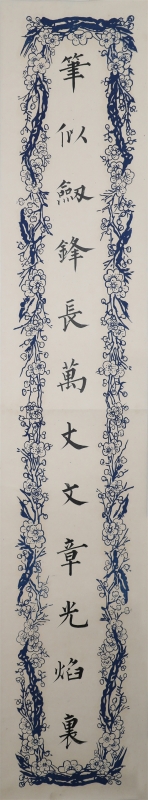 筆似劒鋒長萬丈文章光焰裏